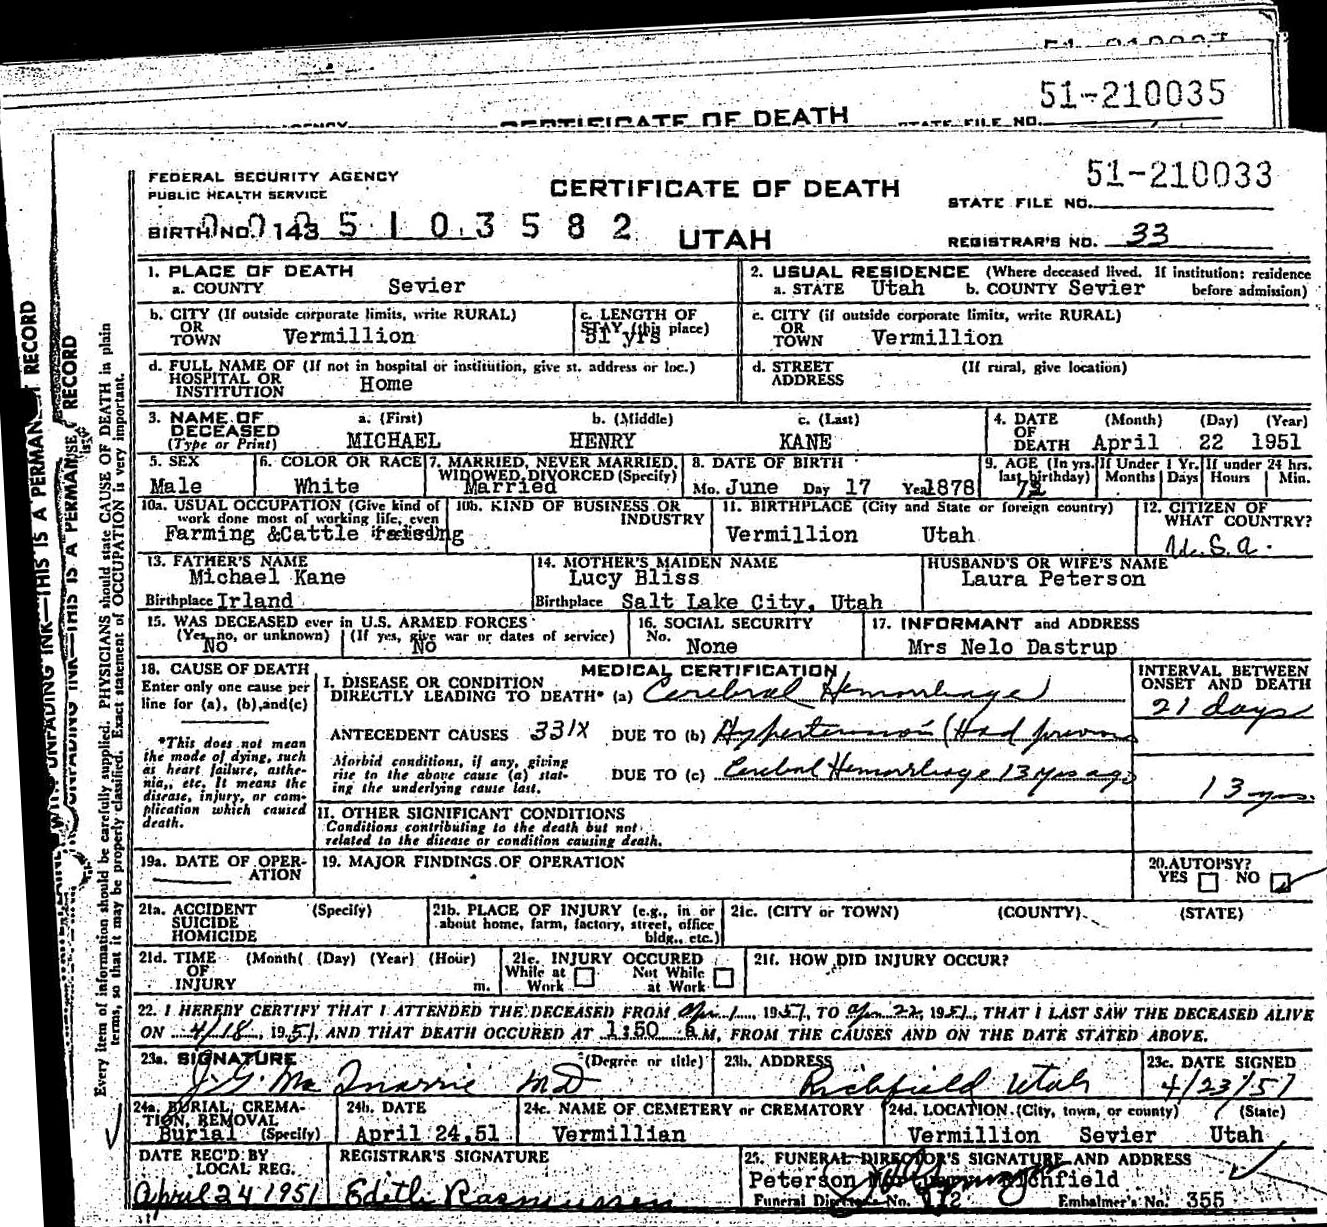 51-210035
CERTIFICATE OF DEATH STATE FILE NO.
FEDERAL SECURITY AGENCY
PUBLIC HEALTH SERVICE
CERTIFICATE OF DEATH
51-210033
STATE FILE NO.
BIRTH NO. 143 5 1 0 3 5 8 2
UTAH
REGISTRAR'S NO. 33
1. PLACE OF DEATH
a. COUNTY Sevier
2. USUAL RESIDENCE (Where deceased lived. If institution: residence
a. STATE Utah b. COUNTY Sevier before admission)
b. CITY (If outside corporate limits, write RURAL)
OR
TOWN Vermillion
c. LENGTH OF
STAY (this place)
51 yrs
c. CITY (if outside corporate limits, write RURAL)
OR
TOWN Vermillion
d. FULL NAME OF (If not in hospital or institution, give st. address or loc.)
HOSPITAL OR
INSTITUTION Home
d. STREET (If rural, give location)
ADDRESS
3. NAME OF DECEASED (Type or Print)
a. (First) b. (Middle) c. (Last)
MICHAEL HENRY KANE
4. DATE OF DEATH (Month) (Day) (Year)
April 22 1951
5. SEX
Male
6. COLOR OR RACE
White
7. MARRIED, NEVER MARRIED,
WIDOWED, DIVORCED (Specify)
Married
8. DATE OF BIRTH
Mo. June Day 17 Year 1878
9. AGE (In yrs. last birthday)
72
If Under 1 Yr. Months Days
If under 24 hrs. Hours Min.
10a. USUAL OCCUPATION (Give kind of
work done most of working life, even
Farming &Cattle
10b. KIND OF BUSINESS OR
INDUSTRY
11. BIRTHPLACE (City and State or foreign country)
Vermillion Utah
12. CITIZEN OF
WHAT COUNTRY?
U.S.A.
13. FATHER'S NAME
Michael Kane
Birthplace Irland
14. MOTHER'S MAIDEN NAME
Lucy Bliss
Birthplace Salt Lake City, Utah
HUSBAND'S OR WIFE'S NAME
Laura Peterson
15. WAS DECEASED ever in U.S. ARMED FORCES
(Yes, no, or unknown) (If yes, give war or dates of service)
No No
16. SOCIAL SECURITY
No. None
17. INFORMANT and ADDRESS
Mrs Nelo Dastrup
18. CAUSE OF DEATH
Enter only one cause per
line for (a), (b), and(c)
*This does not mean
the mode of dying, such
as heart failure, asthe-
nia,, etc. It means the
disease, injury, or com-
plication which caused
death.
MEDICAL CERTIFICATION
I. DISEASE OR CONDITION
DIRECTLY LEADING TO DEATH* (a) Cerebral Hemorrhage
ANTECEDENT CAUSES 331X DUE TO (b) Hypertension (Had previous
Morbid conditions, if any, giving
rise to the above cause (a) stat-
ing the underlying cause last.
DUE TO (c) Cerebral Hemorrhage 13 yrs ago
INTERVAL BETWEEN
ONSET AND DEATH
21 days
13 yrs.
II. OTHER SIGNIFICANT CONDITIONS
Conditions contributing to the death but not
related to the disease or condition causing death.
19a. DATE OF OPER-
ATION
19. MAJOR FINDINGS OF OPERATION
20. AUTOPSY?
YES NO
21a. ACCIDENT (Specify)
SUICIDE
HOMICIDE
21b. PLACE OF INJURY (e.g., in or
about home, farm, factory, street, office
bldg., etc.)
21c. (CITY or TOWN) (COUNTY) (STATE)
21d. TIME (Month( (Day) (Year) (Hour)
OF
INJURY m.
21e. INJURY OCCURED
While at Work Not While at Work
21f. HOW DID INJURY OCCUR?
22. I HEREBY CERTIFY THAT I ATTENDED THE DECEASED FROM Apr. 1, 1951, TO Apr. 22, 1951, THAT I LAST SAW THE DECEASED ALIVE
ON 4/18, 1951, AND THAT DEATH OCCURED AT 1:50 a.M, FROM THE CAUSES AND ON THE DATE STATED ABOVE.
23a. SIGNATURE (Degree or title)
J.G. Mc MD
23b. ADDRESS
Richfield Utah
23c. DATE SIGNED
4/23/51
24a. BURIAL, CREMA-
TION, REMOVAL
Burial (Specify)
24b. DATE
April 24,51
24c. NAME OF CEMETERY or CREMATORY
Vermillian
24d. LOCATION (City, town, or county) (State)
Vermillion Sevier Utah
DATE REC'D BY
LOCAL REG.
April 24 1951
REGISTRAR'S SIGNATURE
Edith Rasmussen
25. FUNERAL DIRECTOR'S SIGNATURE AND ADDRESS
Peterson Mortuary Richfield
Funeral Director's No. Embalmer's No. 355
Every item of information should be carefully supplied. PHYSICIANS should state CAUSE OF DEATH in plain
terms, so that it may be properly classified. Exact statement of OCCUPATION is very important.
UNFADING INK—THIS IS A PERMANENT RECORD